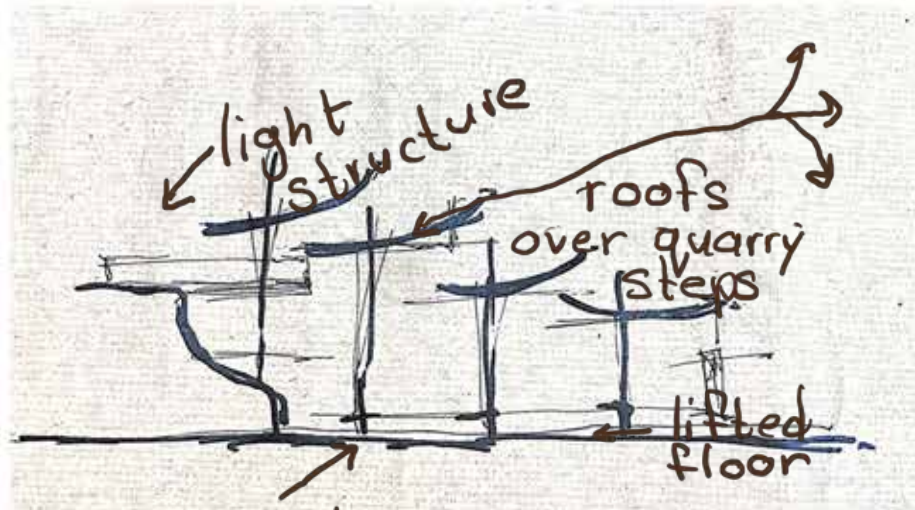 light
structure
roofs
over quarry
steps
lifted
floor